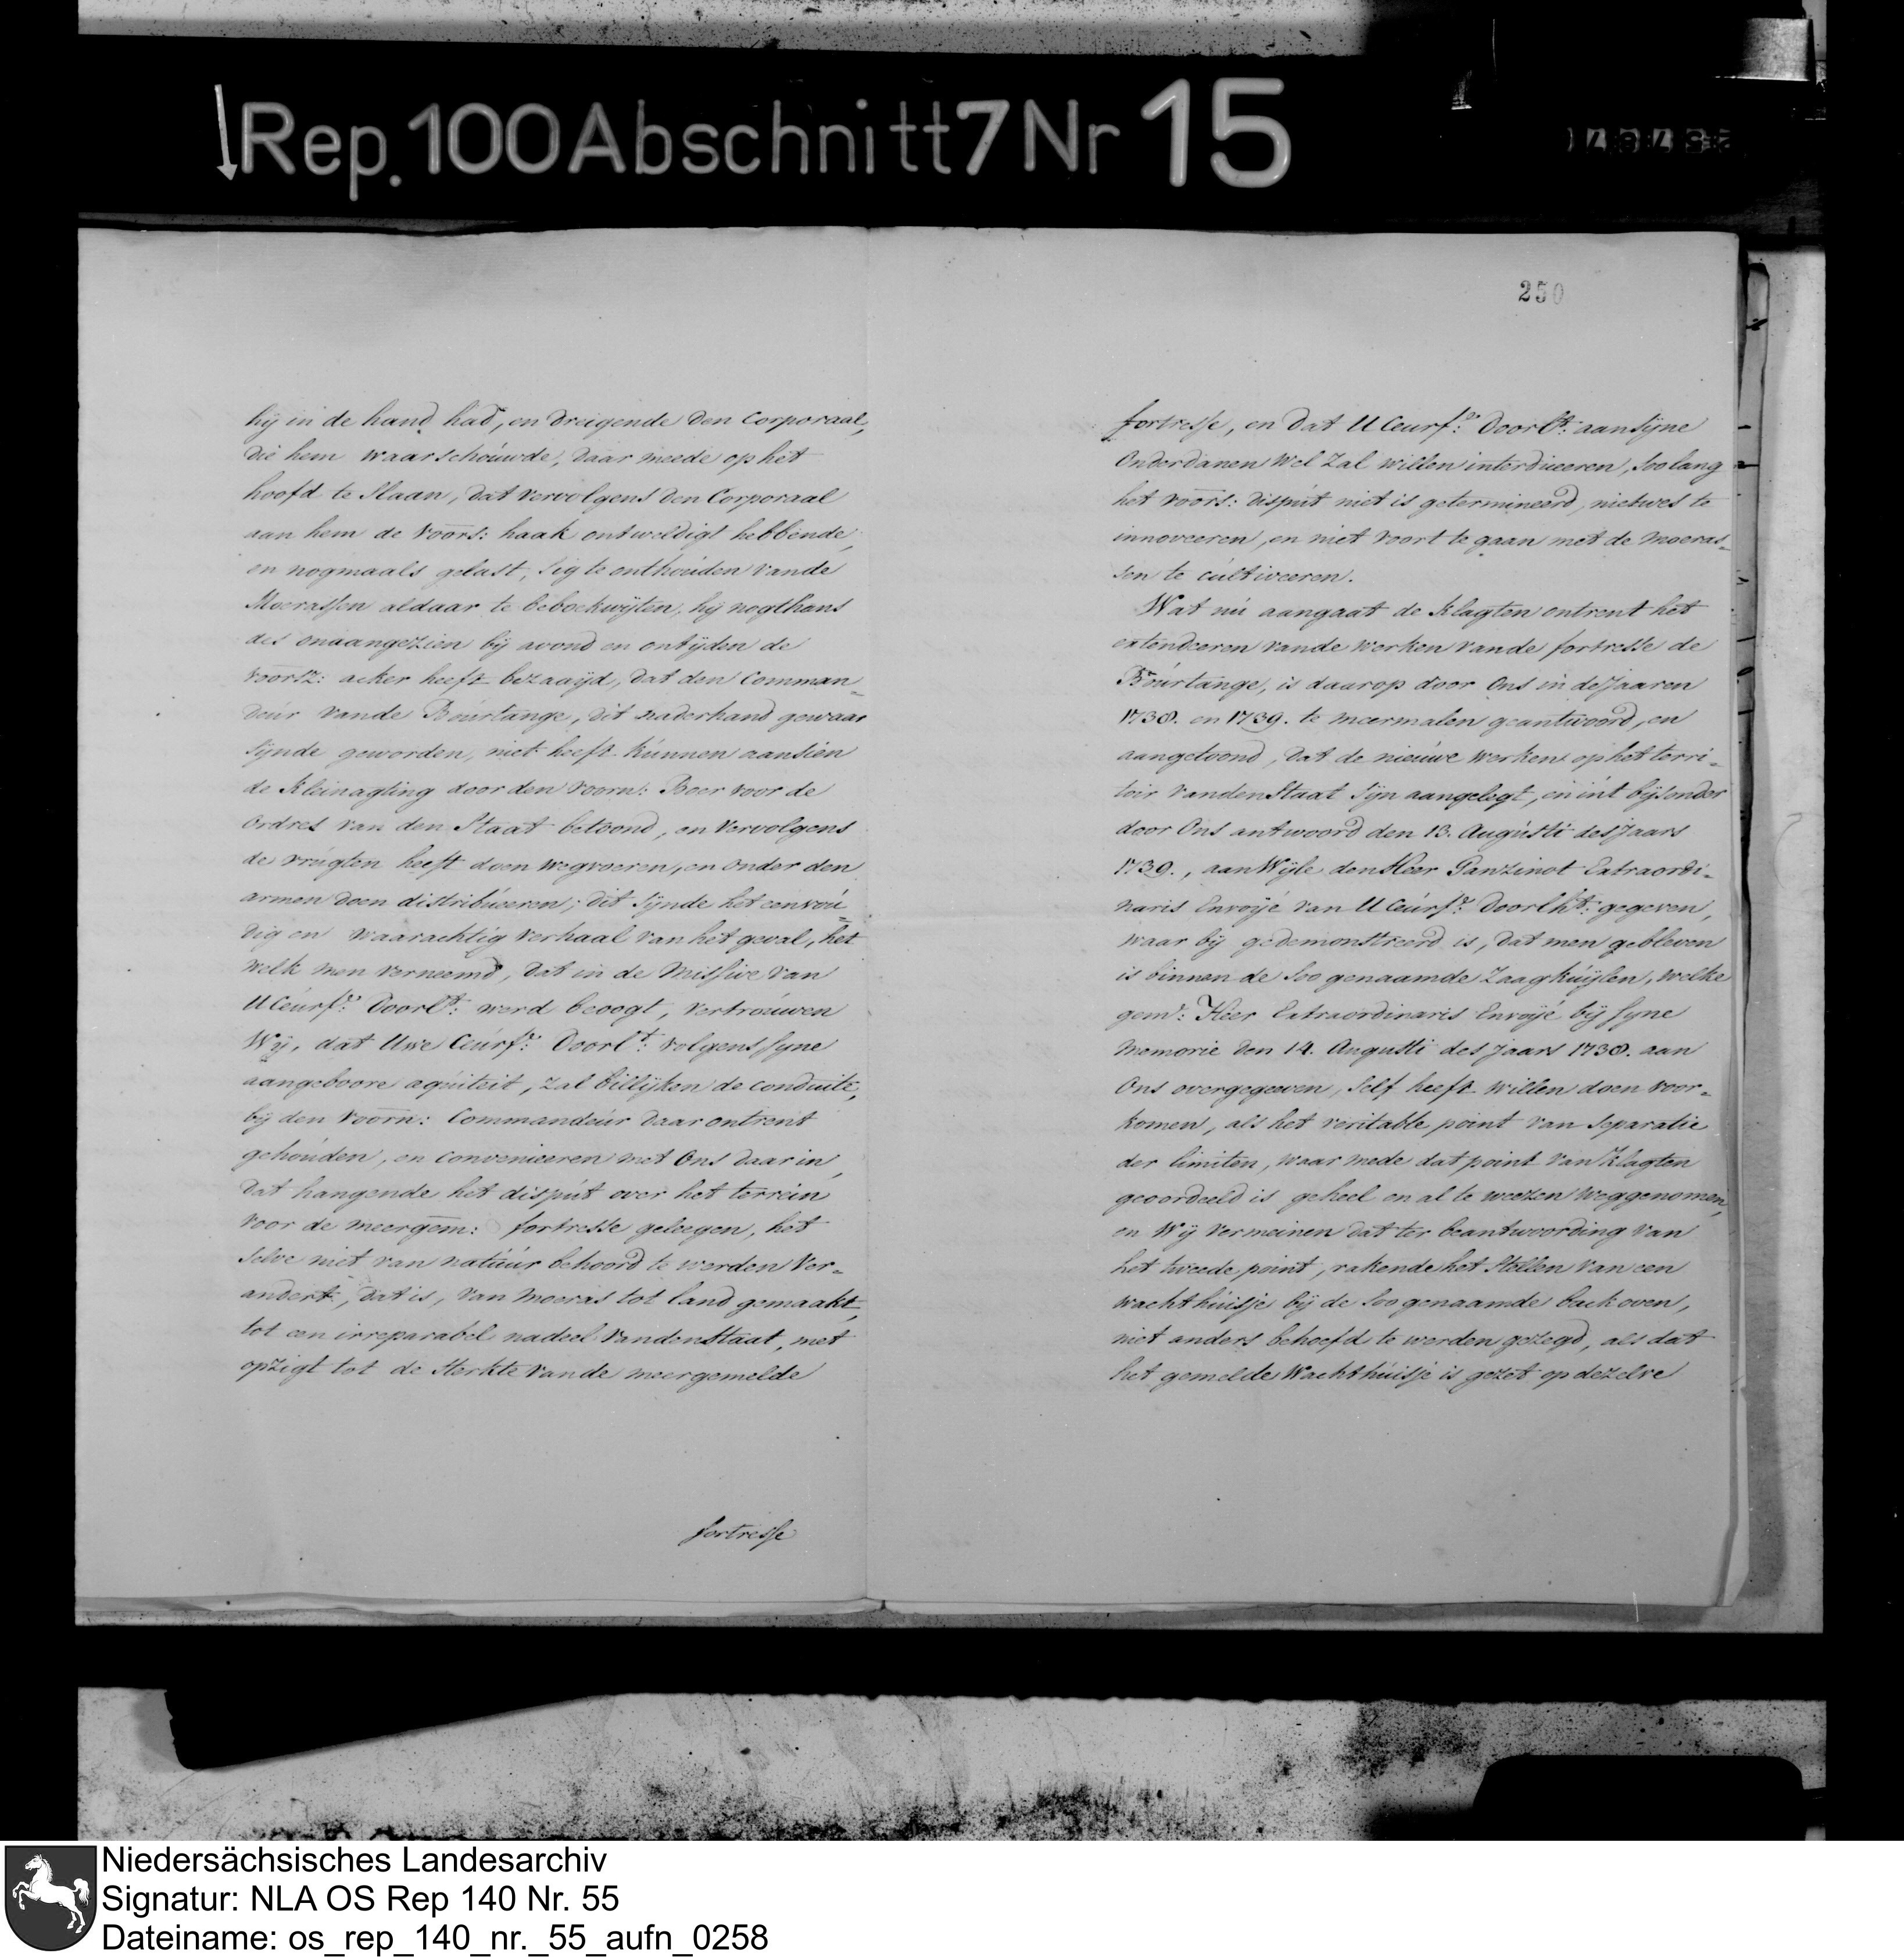 Rep. 100 Abschnitt 7 Nr 15
250
hij in de hand had, en dreigende den Corporaal,
die hem waarschoúwde, daar meede op het
hoofd te slaan, dat vervolgens den Corporaal
aan hem de voors: haak ontweldigt hebbende,
en nogmaals gelast, sig te onthoúden vande
Moerassen aldaar te beboekwijten, hij nogthans
des onaangezien bij avond en ontijden de
voorsz: acker heeft bezaaijd, dat den Comman=
deúr vande Boúrtange, dit naderhand gewaar
sijnde geworden, niet heeft kúnnen aansien
de kleinagting door den voorn: Boer voor de
ordres van den Staat betoond, en vervolgens
de vrúgten heeft doen wegvoeren, en onder den
armen doen distribúeeren; dit sijnde het eenvoú=
dig en waarachtig verhaal van het geval, het
welk men verneemd, dat in de Missive van
U Ceúrfr: Doorlt: werd beoogt, vertroúwen
Wij, dat Uwe Ceúrfr: Doorlt: volgens syne
aangeboore aqúiteit, zal billijken de conduite,
bij den voorn: Commandeúr daar ontrent
gehoúden, en convenieeren met Ons daar in,
dat hangende het dispút over het terrein
voor de meergem: fortresse geleegen, het
selve niet van natúúr behoord te werden ver=
andert, dat is, van moeras tot land gemaakt,
tot een irreparabel nadeel vanden Staat, met
opzigt tot de sterkte vande meergemelde
fortresse
fortresse, en dat U Ceurfr: Doorlt: aan sijne
Onderdanen wel zal willen interdiceeren, soo lang
het voors: dispút niet is getermineerd, nietwes te
innoveeren, en niet voort te gaan met de moeras=
sen te cúltiveeren.
Wat nú aangaat de klagten ontrent het
extendeeren vande werken vande fortresse de
Boúrtange, is daarop door Ons in de Jaaren
1738. en 1739. te meermalen geantwoord, en
aangetoond, dat de nieúwe werken op het terri=
toir vanden Staat sijn aangelegt, en int bijsonder
door Ons antwoord den 13. Augústi des Jaars
1739., aan Wijle den Heer Ganzinot Extraordi=
naris Envoijé van U Ceúrfr: Doorlht: gegeven,
waar bij gedemonstreerd is, dat men gebleven
is binnen de soo genaamde Zaagkúijlen, welke
gemr: Heer Extraordinaris Envoijé bij syne
Memorie den 14. Augusti des Jaars 1738. aan
Ons overgegeven, self heeft willen doen voor=
komen, als het veritable point van separatie
der limiten, waar mede dat point van klagten
geoordeeld is geheel en al te weezen weggenomen,
en Wij vermeinen dat ter beantwoording van
het tweede point, rakende het stellen van een
wachthúisje bij de soo genaamde back oven,
niet anders behoefd te werden gezegd, als dat
het gemelde Wachthúisje is gezet op dezelve
Niedersächsisches Landesarchiv
Signatur: NLA OS Rep 140 Nr. 55
Dateiname: os_rep_140_nr._55_aufn_0258